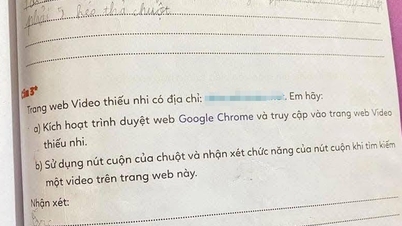 phải 3 kéo thả chuột
Câu 3*
Trang web Video thiếu nhi có địa chỉ: . Em hãy:
a) Kích hoạt trình duyệt web Google Chrome và truy cập vào trang web Video
thiếu nhi.
b) Sử dụng nút cuộn của chuột và nhận xét chức năng của nút cuộn khi tìm kiếm
một video trên trang web này.
Nhận xét: